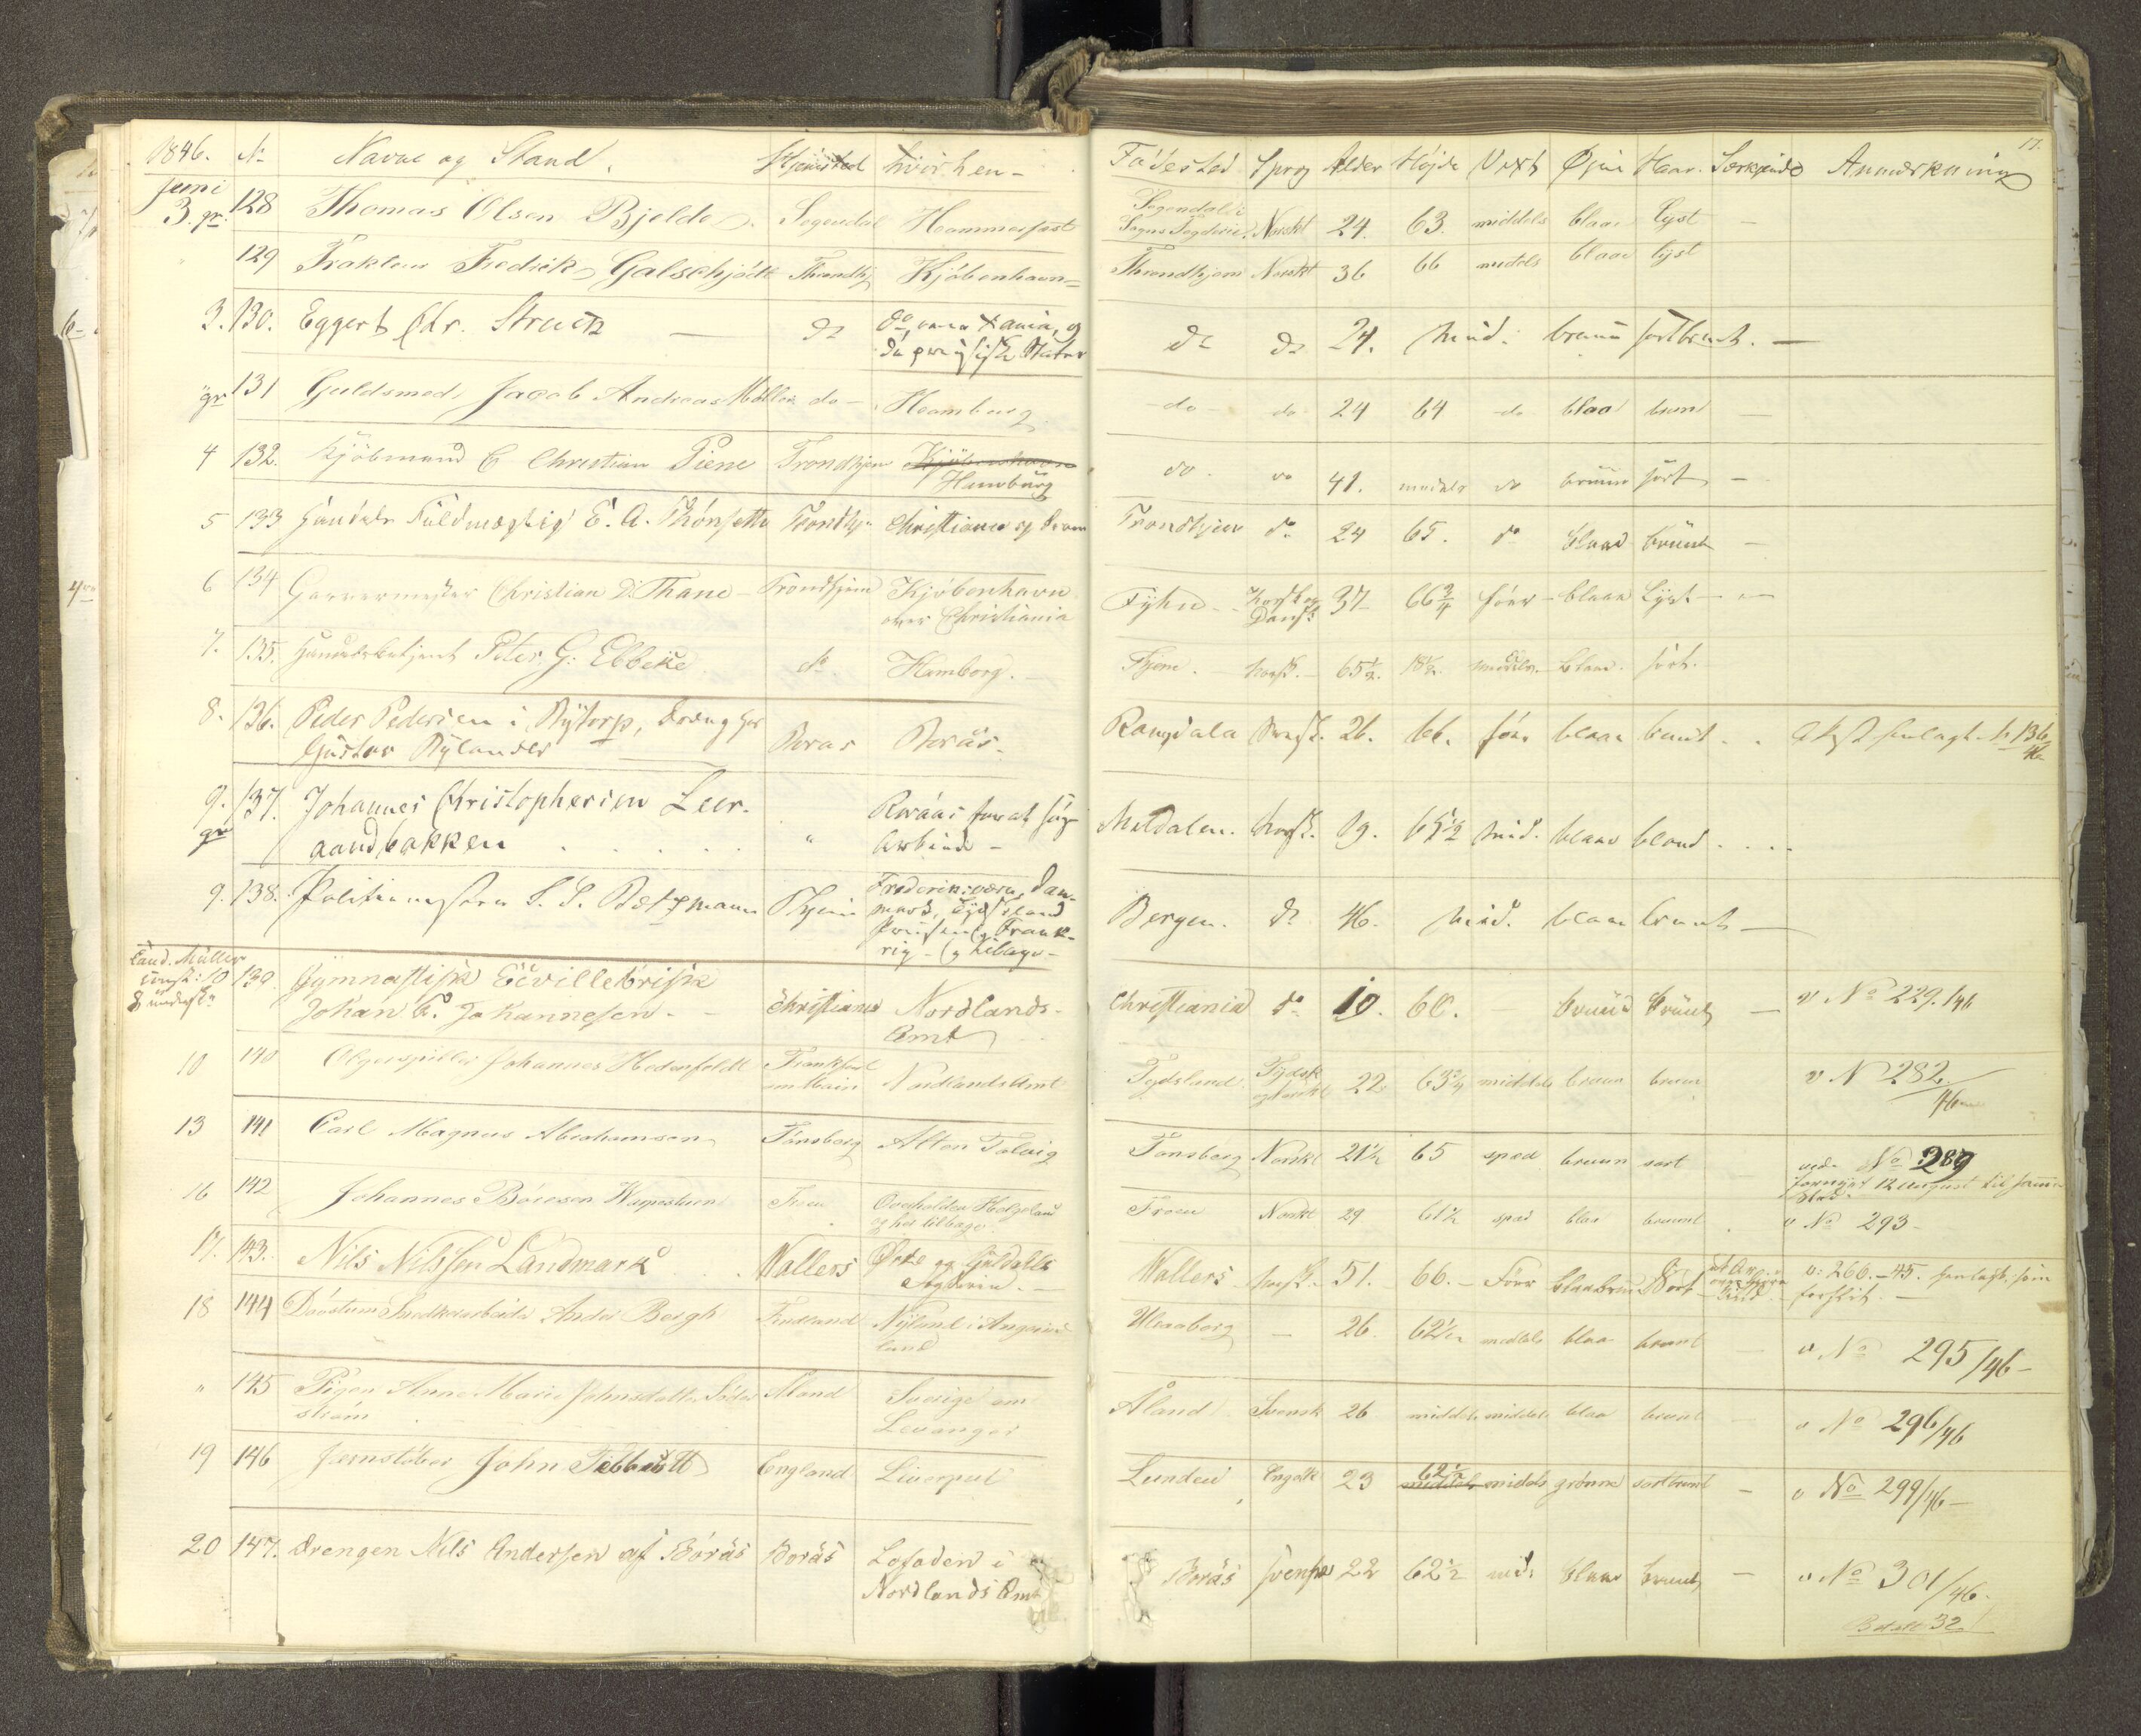 17.
1846. No Navne og Stand. Hjemsted hvorhen - Födested Sprog Alder Höjde Vext Øjne Haar. Særkjende Anmærkning
Juni
3. gr. 128 Thomas Olsen Bjelde. Sogendal Hammerfest Sogendal i Sogns Fogderie. Norskt 24. 63. middels blaae lyst -
129 Fredrik Galschjödt Throndhj Kjöbenhavn Throndhjem Norskt 36 66 middels blaae lyst
3. 130. Eggert Chr. Struck - do do, over og do do 24. mid. bruun sortbrunt. -
gr 131 Guldsmed Jacob Andreas Möller do - Hamburg - do - do 24 64 do blaa brunt -
4 132. Kjöbmand C Christian Piene Trondhjem Kjöbenhavn Hamburg do. do 41. middels do bruun sort -
5 133 Handels Fuldmægtig E. A. Trondhj. Christiania og Trondhjem do 24 65. do blaae bruunt -
6 134 Garvermester Christian D. Thane - Trondhjem Kjöbenhavn over Christiania Fyhn - Norsk og Dansk 37 66 3/4 före - blaae Lyst - -
7. 135. Handelsbetjent Peter G: Ebbeke do Hamborg. - Thjem. - norsk. - 65 1/2. 18 1/2. middels - blaae. sort.
8. 136. Peder Pedersen i Rytorp, Dreng hos Gustav Rylander Boras Borås. Rangdala svensk. 26. 66. före blaae bruunt . . 136/46
9. gr 137. Johannes Christophersen Leer-
aandbakken . . . . . " Röraas for at söge Arbeide - Meldalen. norsk. 19. 65 1/2 mid. blaae blond . . . .
9. 138. Politimester Betzmann Thjem Frederiksværn, Danmark, Tydskland Preussen og Frankrig - og tilbage - Bergen. do 46. mid. blaae bruunt -
Cand. Müller
10 139. Gymnastisk
Johan C. Johannesen - - Christiania Nordlands-
Amt Christiania do 10. 60. - bruun bruunt - v No 229./46
10 140 Johannes Hedenfeldt Frankfurt am Main Nordlands Amt Tydsland. Tydsk og Norskt 22 63 3/4 middels bruun bruun v No 282./46
13 141 Carl Magnus Abrahamsen Tönsberg Alten Talvig Tönsberg Norskt 21 1/2 65 spæd bruun sort No 289
fornyet 12 August til samme Sted.
16 142 Johannes Böresen Froen Overhalden Helgeland og her tilbage. Froen Norskt 29 61 1/2 spæd blaa bruunt . v No 293 -
17. 143. Nils Nilssen Landmark . . . Wallers Örke og Guldals Fogderie. - Wallers - norsk. - 51. 66. - Före sort v: 266. - 45. henlagt som forslit. -
18 144 Snedkerarbeider Anders Bergh Findland Nyland i Angermanland Uleaborg - 26. 62 1/2 middels blaa bruunt v No 295/46 -
" 145 Pigen Anne Maria Johnsdatter Söderström Åland Sverige om Levanger Åland Svensk 26 middels middels blaa bruunt - v No 296/46
19 146 Jernstöber John Tebbutt England Liverpul Lunden Engelsk 23 62 1/2 middels middels grönne sortbrunt - v No 299/46 -
20 147. Drengen Nils Andersen af Börås Borås Lofoden i
Nordlands Amt Borås svensk 22 62 1/2 mid. blaae bruunt - v No 301/46.
32